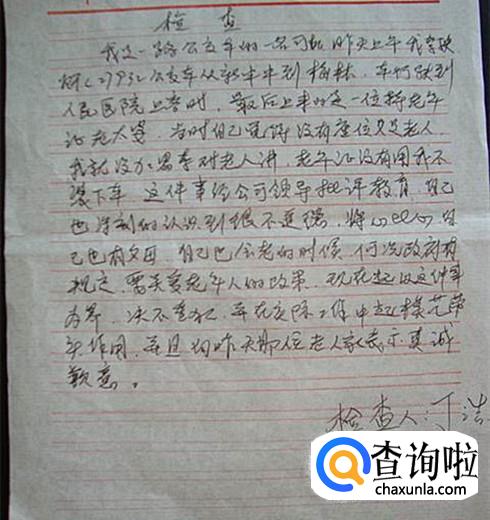 检 查
我是一路公交车的一名司机,昨天上午我驾驶
2793公交车从新丰到梅林,车行驶到
人民医院上客时,最后上来的是一位持老年
证老太婆,当时自己觉得没有座位又是老人,
我就没加思索对老人讲,老年证没有用我不
下车,这件事经公司领导批评教育,自己
也深刻的认识到很不应该,将心比心自
己也有父母,自己也会老的时候,何况政府有
规定,需关爱老年人的政策,现在起以这件事
为界,决不重犯,并在实际工作中起模范带
头作用,并且向昨天那位老人家表示真诚
歉意。
检查人:丁浩
查询啦
chaxunla.com